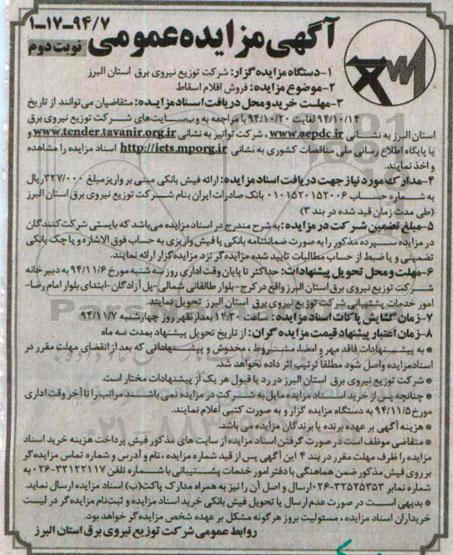 آگهی مزایده عمومی
۹۴/۷-۱۷-۱
نوبت دوم
۱-دستگاه مزایده گزار: شرکت توزیع نیروی برق استان البرز
۲-موضوع مزایده: فروش اقلام اسقاط
۳-مهلت خرید و محل دریافت اسناد مزایده: متقاضیان می‌توانند از تاریخ
۹۴/۱۰/۱۴ لغایت ۹۴/۱۰/۲۰ با مراجعه به وب‌سایت‌های شرکت توزیع نیروی برق
استان البرز به نشانی www.aepdc.ir، شرکت توانیر به نشانی www.tender.tavanir.org.ir و
یا پایگاه اطلاع رسانی ملی مناقصات کشوری به نشانی http://iets.mporg.ir اسناد مزایده را مشاهده
و اخذ نمایند.
۴-مدارک مورد نیاز جهت دریافت اسناد مزایده: ارائه فیش بانکی مبنی بر واریز مبلغ ۳۲۷/۰۰۰ ریال
به شماره حساب ۰۱۰۱۵۲۰۱۵۲۰۰۶ بانک صادرات ایران بنام شرکت توزیع نیروی برق استان البرز
(طی مدت زمان قید شده در بند ۳)
۵-مبلغ تضمین شرکت در مزایده: به شرح مندرج در اسناد مزایده می‌باشد که بایستی شرکت‌کنندگان
در مزایده سپرده مذکور را به صورت ضمانتنامه بانکی یا فیش واریزی به حساب فوق الاشاره و یا چک بانکی
تضمینی و یا ضبط از حساب مطالبات تایید شده مزایده‌گر نزد مزایده‌گزار ارائه نمایند.
۶-مهلت و محل تحویل پیشنهادات: حداکثر تا پایان وقت اداری روز سه شنبه مورخ ۹۴/۱۱/۶ به دبیرخانه
شرکت توزیع نیروی برق استان البرز واقع در کرج-بلوار طالقانی شمالی-پل آزادگان-ابتدای بلوار امام رضا-
امور خدمات پشتیبانی شرکت توزیع نیروی برق استان البرز تحویل نمایند.
۷-زمان گشایش پاکات اسناد مزایده: ساعت ۱۴:۳۰ بعدازظهر روز چهارشنبه ۹۴/۱۱/۷
۸-زمان اعتبار پیشنهاد قیمت مزایده گران: از تاریخ تحویل پیشنهاد بمدت سه ماه
* به پیشنهادات فاقد مهر و امضا، مشروط، مخدوش و پیشنهاداتی که بعد از انقضای مهلت مقرر در
اسناد مزایده واصل شود مطلقاً ترتیب اثر داده نخواهد شد.
* شرکت توزیع نیروی برق استان البرز در رد یا قبول هر یک از پیشنهادات مختار است.
* چنانچه پس از خرید اسناد مزایده مایل به شرکت در مزایده نمی باشند مراتب را تا آخر وقت اداری
مورخ ۹۴/۱۱/۵ به دستگاه مزایده گزار و به صورت کتبی اعلام نمایند.
* هزینه آگهی بر عهده برنده یا برندگان مزایده می باشد.
* متقاضی موظف است در صورت گرفتن اسناد مزایده از سایت های مذکور فیش پرداخت هزینه خرید اسناد
مزایده را ظرف مهلت مقرر در بند ۴ این آگهی پس از قید شماره مزایده، نام و آدرس و شماره تماس مزایده‌گر
بر روی فیش مذکور ضمن هماهنگی با دفتر امور خدمات پشتیبانی با شماره تلفن ۳۲۱۲۲۱۱۷-۰۲۶ به
شماره نمابر ۳۲۵۲۵۳۵۳-۰۲۶ ارسال و اصل آن را نیز به همراه مدارک پاکت(ب) اسناد مزایده ارسال نماید.
* بدیهی است در صورت عدم ارسال یا تحویل فیش بانکی خرید اسناد مزایده و ثبت‌نام مزایده‌گر در لیست
خریداران اسناد مزایده، مسئولیت بروز هرگونه مشکل بر عهده شخص مزایده‌گر خواهد بود.
روابط عمومی شرکت توزیع نیروی برق استان البرز